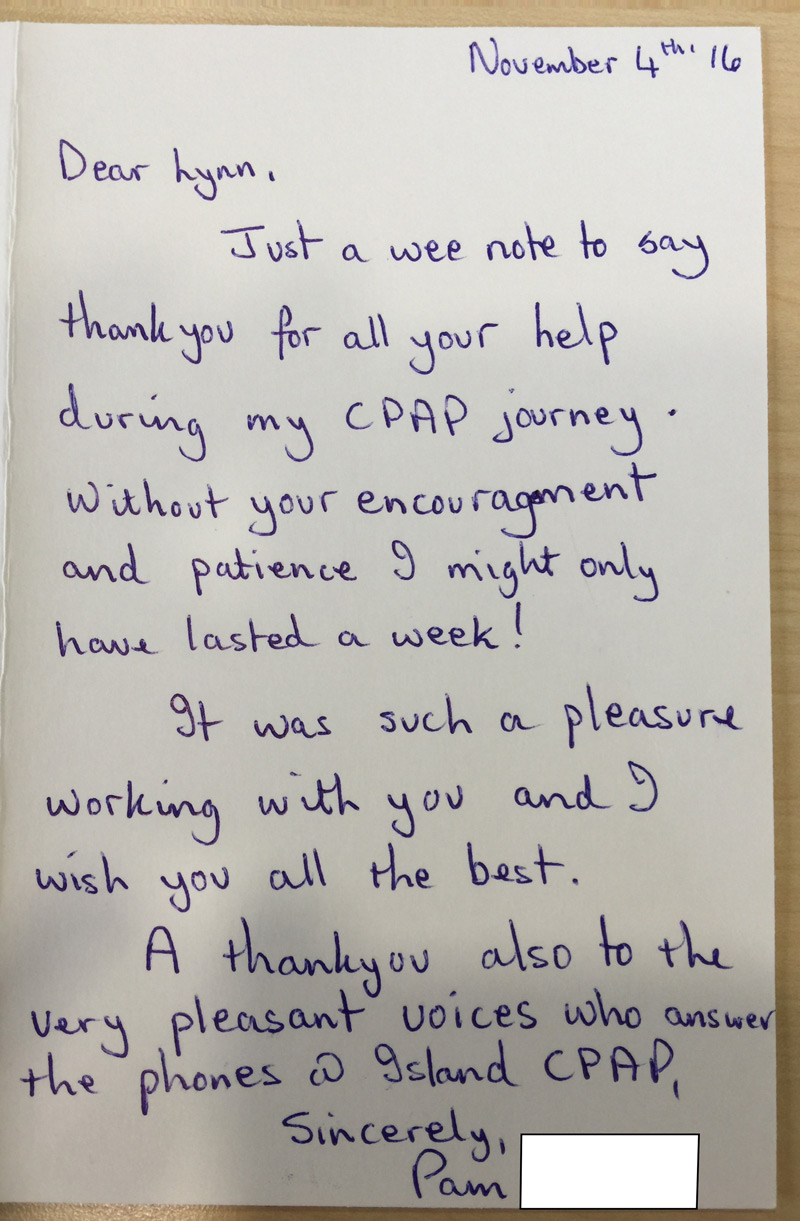 November 4th. '16
Dear Lynn.
Just a wee note to say
thankyou for all your help
during my CPAP journey.
Without your encouragement
and patience I might only
have lasted a week!
It was such a pleasure
working with you and I
wish you all the best.
A thankyou also to the
very pleasant voices who answer
the phones @ Island CPAP,
Sincerely,
Pam